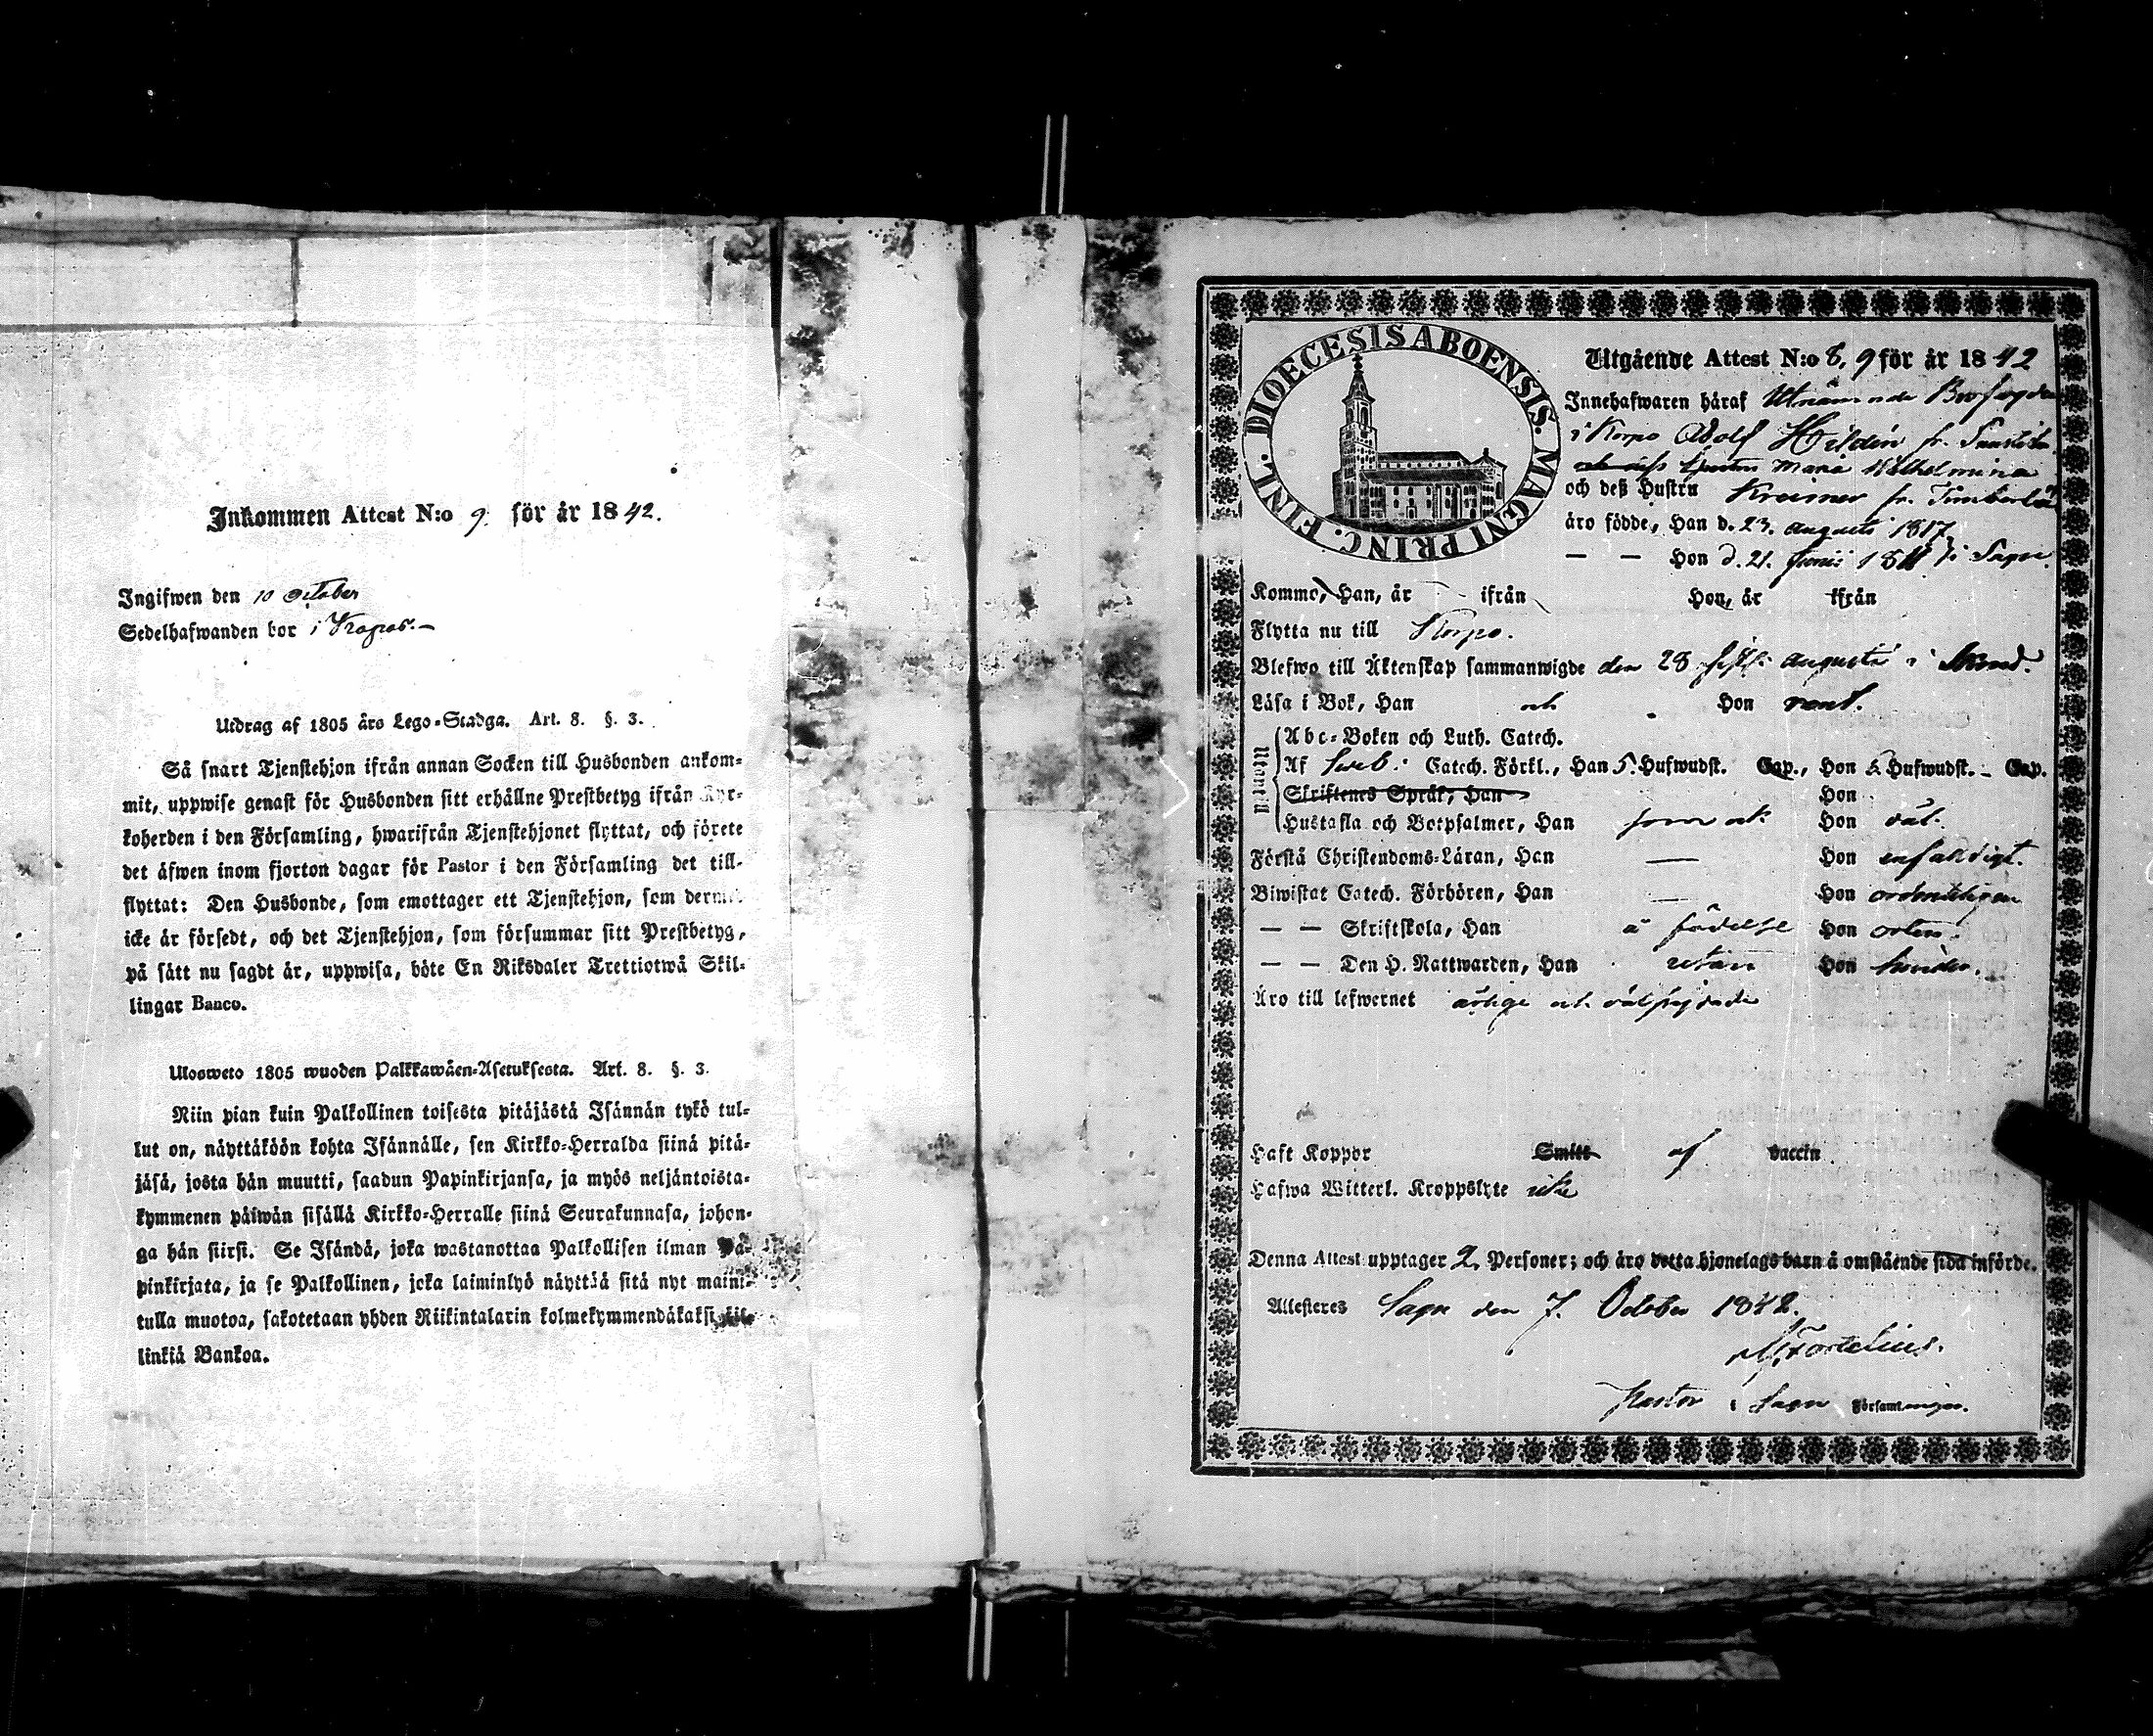 Inkommen Attest N:o 9. för år 1842.
Ingifwen den 10 October
Sedelhafwanden bor i
Utdrag af 1805 års Lego-Stadga. Art. 8. §. 3.
Så snart Tjenstehjon ifrån annan Socken till Husbonden ankom-
mit, uppwise genast för Husbonden sitt erhållne Prestbetyg ifrån Kyr-
koherden i den Församling, hwarifrån Tjenstehjonet flyttat, och förete
det äfwen inom fjorton dagar för Pastor i den Församling det till-
flyttat: Den Husbonde, som emottager ett Tjenstehjon, som dermed
icke är försedt, och det Tjenstehjon, som försummar sitt Prestbetyg,
på sätt nu sagdt är, uppwisa, böte En Riksdaler Trettiotwå Skil-
lingar Banco.
Ulosweto 1805 wuoden Palkkawäen-Asetuksesta. Art. 8. §. 3.
Niin pian kuin Palkollinen toisesta pitäjästä Isännän tykö tul-
lut on, näyttäköön kohta Isännälle, sen Kirkko-Herralda siinä pitä-
jäsä, josta hän muutti, saadun Papinkirjansa, ja myös neljäntoista-
kymmenen päiwän sisällä Kirkko-Herralle siinä Seurakunnasa, johon-
ga hän siirsi. Se Isändä, joka wastanottaa Palkollisen ilman Pa-
pinkirjata, ja se Palkollinen, joka laiminlyö näyttää sitä nyt maini-
tulla muotoa, sakotetaan yhden Riikintalarin kolmekymmendäkaksi kil-
linkiä Bankoa.
DIOECESIS ABOENSIS. MAGNI PRINC. FINL.
Utgående Attest N:o 8, 9 för år 1842
Innehafwaren häraf Utnämnde Brofogden
i Korpo Adolf Hildén fr.
Maria Wilhelmina
och deß Hustru Kreimer fr.
äro födde, Han d. 23. Augusti 1817
— — Hon d. 21. Junii i Sagu.
Komme, Han, år ifrån Hon, år ifrån
Flytta nu till Korpo.
Blefwo till Äktenskap sammanwigde den 28 Augusti i
Läsa i Bok, Han och Hon
Utantill
Abc-Boken och Luth. Catech.
Af Sveb: Catech. Förkl., Han 5. Hufwudst. Cap., Hon 5 Hufwudst. – Cap.
Skriftenes Språk, Han Hon
Hustafla och Botpsalmer, Han Hon väl.
Förstå Christendoms-Läran, Han — Hon enfaldigt.
Biwistat Catech. Förhören, Han — Hon ordentligen
— — Skriftskola, Han å födelse Hon orten.
— — Den H. Nattwarden, Han utan Hon hinder.
Äro till lefwernet ärlige och välfrejdade
Haft Koppor Smitt af vaccin
Hafwa Witterl. Kroppslyte icke
Denna Attest upptager 2. Personer; och äro detta hjonelags barn å omstående sida införde.
Attesteres Sagu den 7. October 1842.
Pastor i Sagu Församlingar.